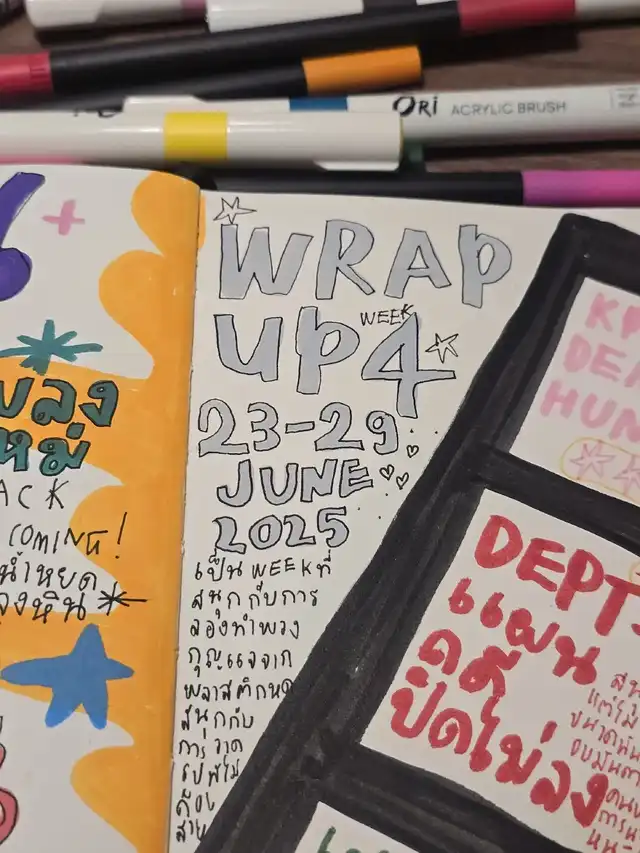 ORI ACRYLIC BRUSH
ลง
ใหม่
ACK
COMING!
น้ำหยด
ลงหิน
WRAP
UP WEEK 4
23-29
JUNE
2025
เป็น WEEK ที่
สนุกกับการ
ลองทำพวง
กุญแจจาก
พลาสติกหด
สนุกกับ
การวาด
รูปที่ไม่
ต้อง
KP
DE
HUN
DEPT
แผน
คดี
ปิดไม่ลง